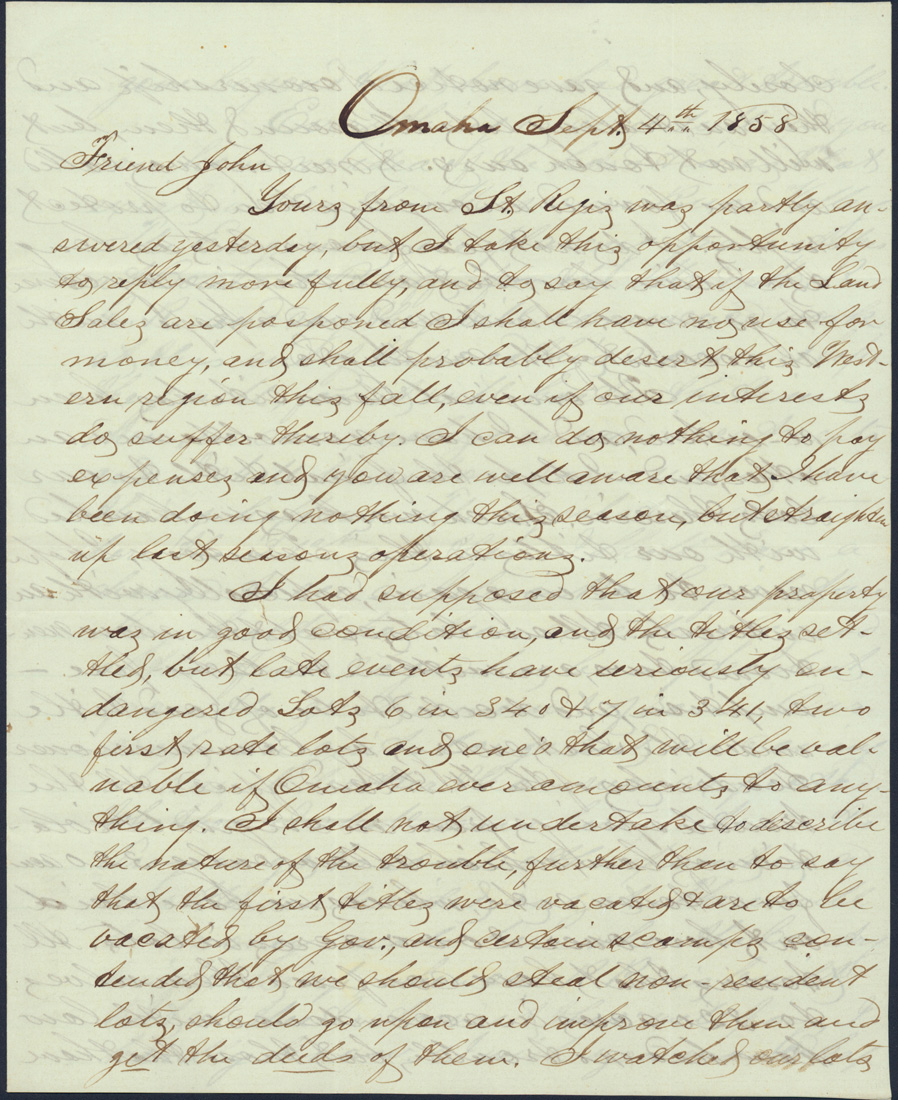 Omaha Sept, 4th 1858
Friend John
Yours from St. Regis was partly an-
swered yesterday, but I take this opportunity
to reply more fully, and to say that if the Land
Sales are posponed I shall have no use for
money, and shall probably desert this West-
ern region this fall, even if our interests
do suffer thereby. I can do nothing to pay
expenses and you are well aware that I have
been doing nothing this season, but straighten
up last seasons operations.
I had supposed that our property
was in good condition, and the titles set-
tled, but late events have seriously en-
dangered Lots 6 in 340 & 7 in 341, two
first rate lots and one's that will be val-
uable if Omaha ever amounts to any-
thing. I shall not undertake to discribe
the nature of the trouble, further than to say
that the first titles were vacated & are to be
vacated by Gov., and certain scamps con-
tended that we should steal non-resident
lots, should go upon and improve them and
get the deeds of them. I watched our lots